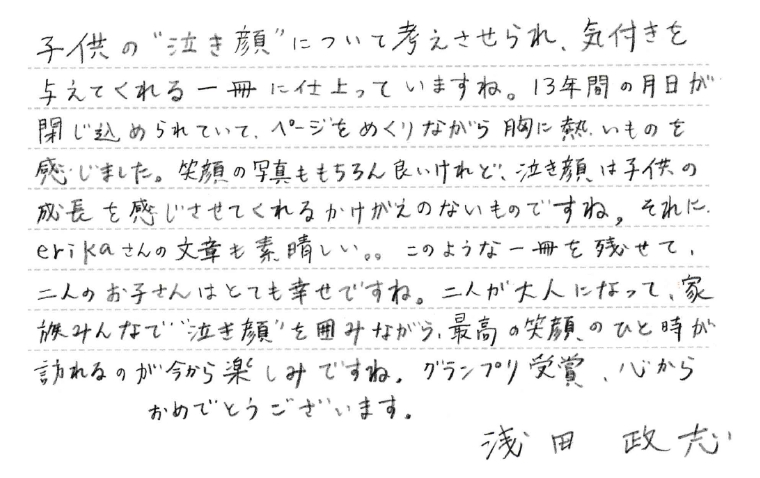 子供の“泣き顔”について考えさせられ、気付きを
与えてくれる一冊に仕上っていますね。13年間の月日が
閉じ込められていて、ページをめくりながら胸に熱いものを
感じました。笑顔の写真ももちろん良いけれど、泣き顔は子供の
成長を感じさせてくれるかけがえのないものですね。それに、
erikaさんの文章も素晴しい。。このような一冊を残せて、
二人のお子さんはとても幸せですね。二人が大人になって、家
族みんなで“泣き顔”を囲みながら、最高の笑顔のひと時が
訪れるのが今から楽しみですね。グランプリ受賞、心から
おめでとうございます。
浅田 政志